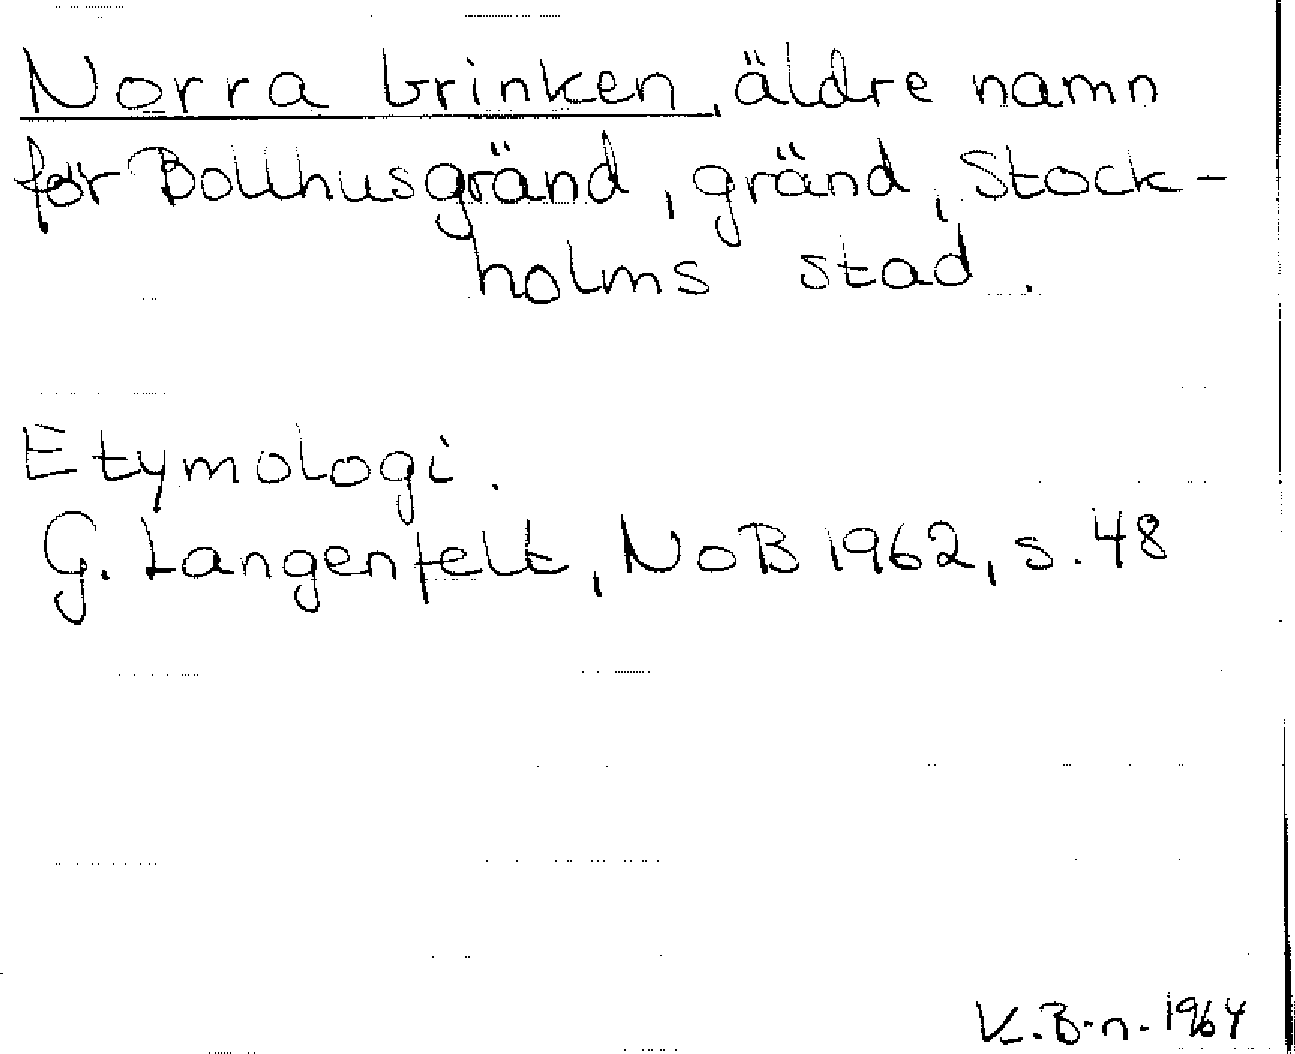 Norra brinken, äldre namn
för Bollhusgränd, gränd, Stock-
holms stad.
Etymologi.
G. Langenfelt, NoB 1962, s. 48
K. B-n. 1964